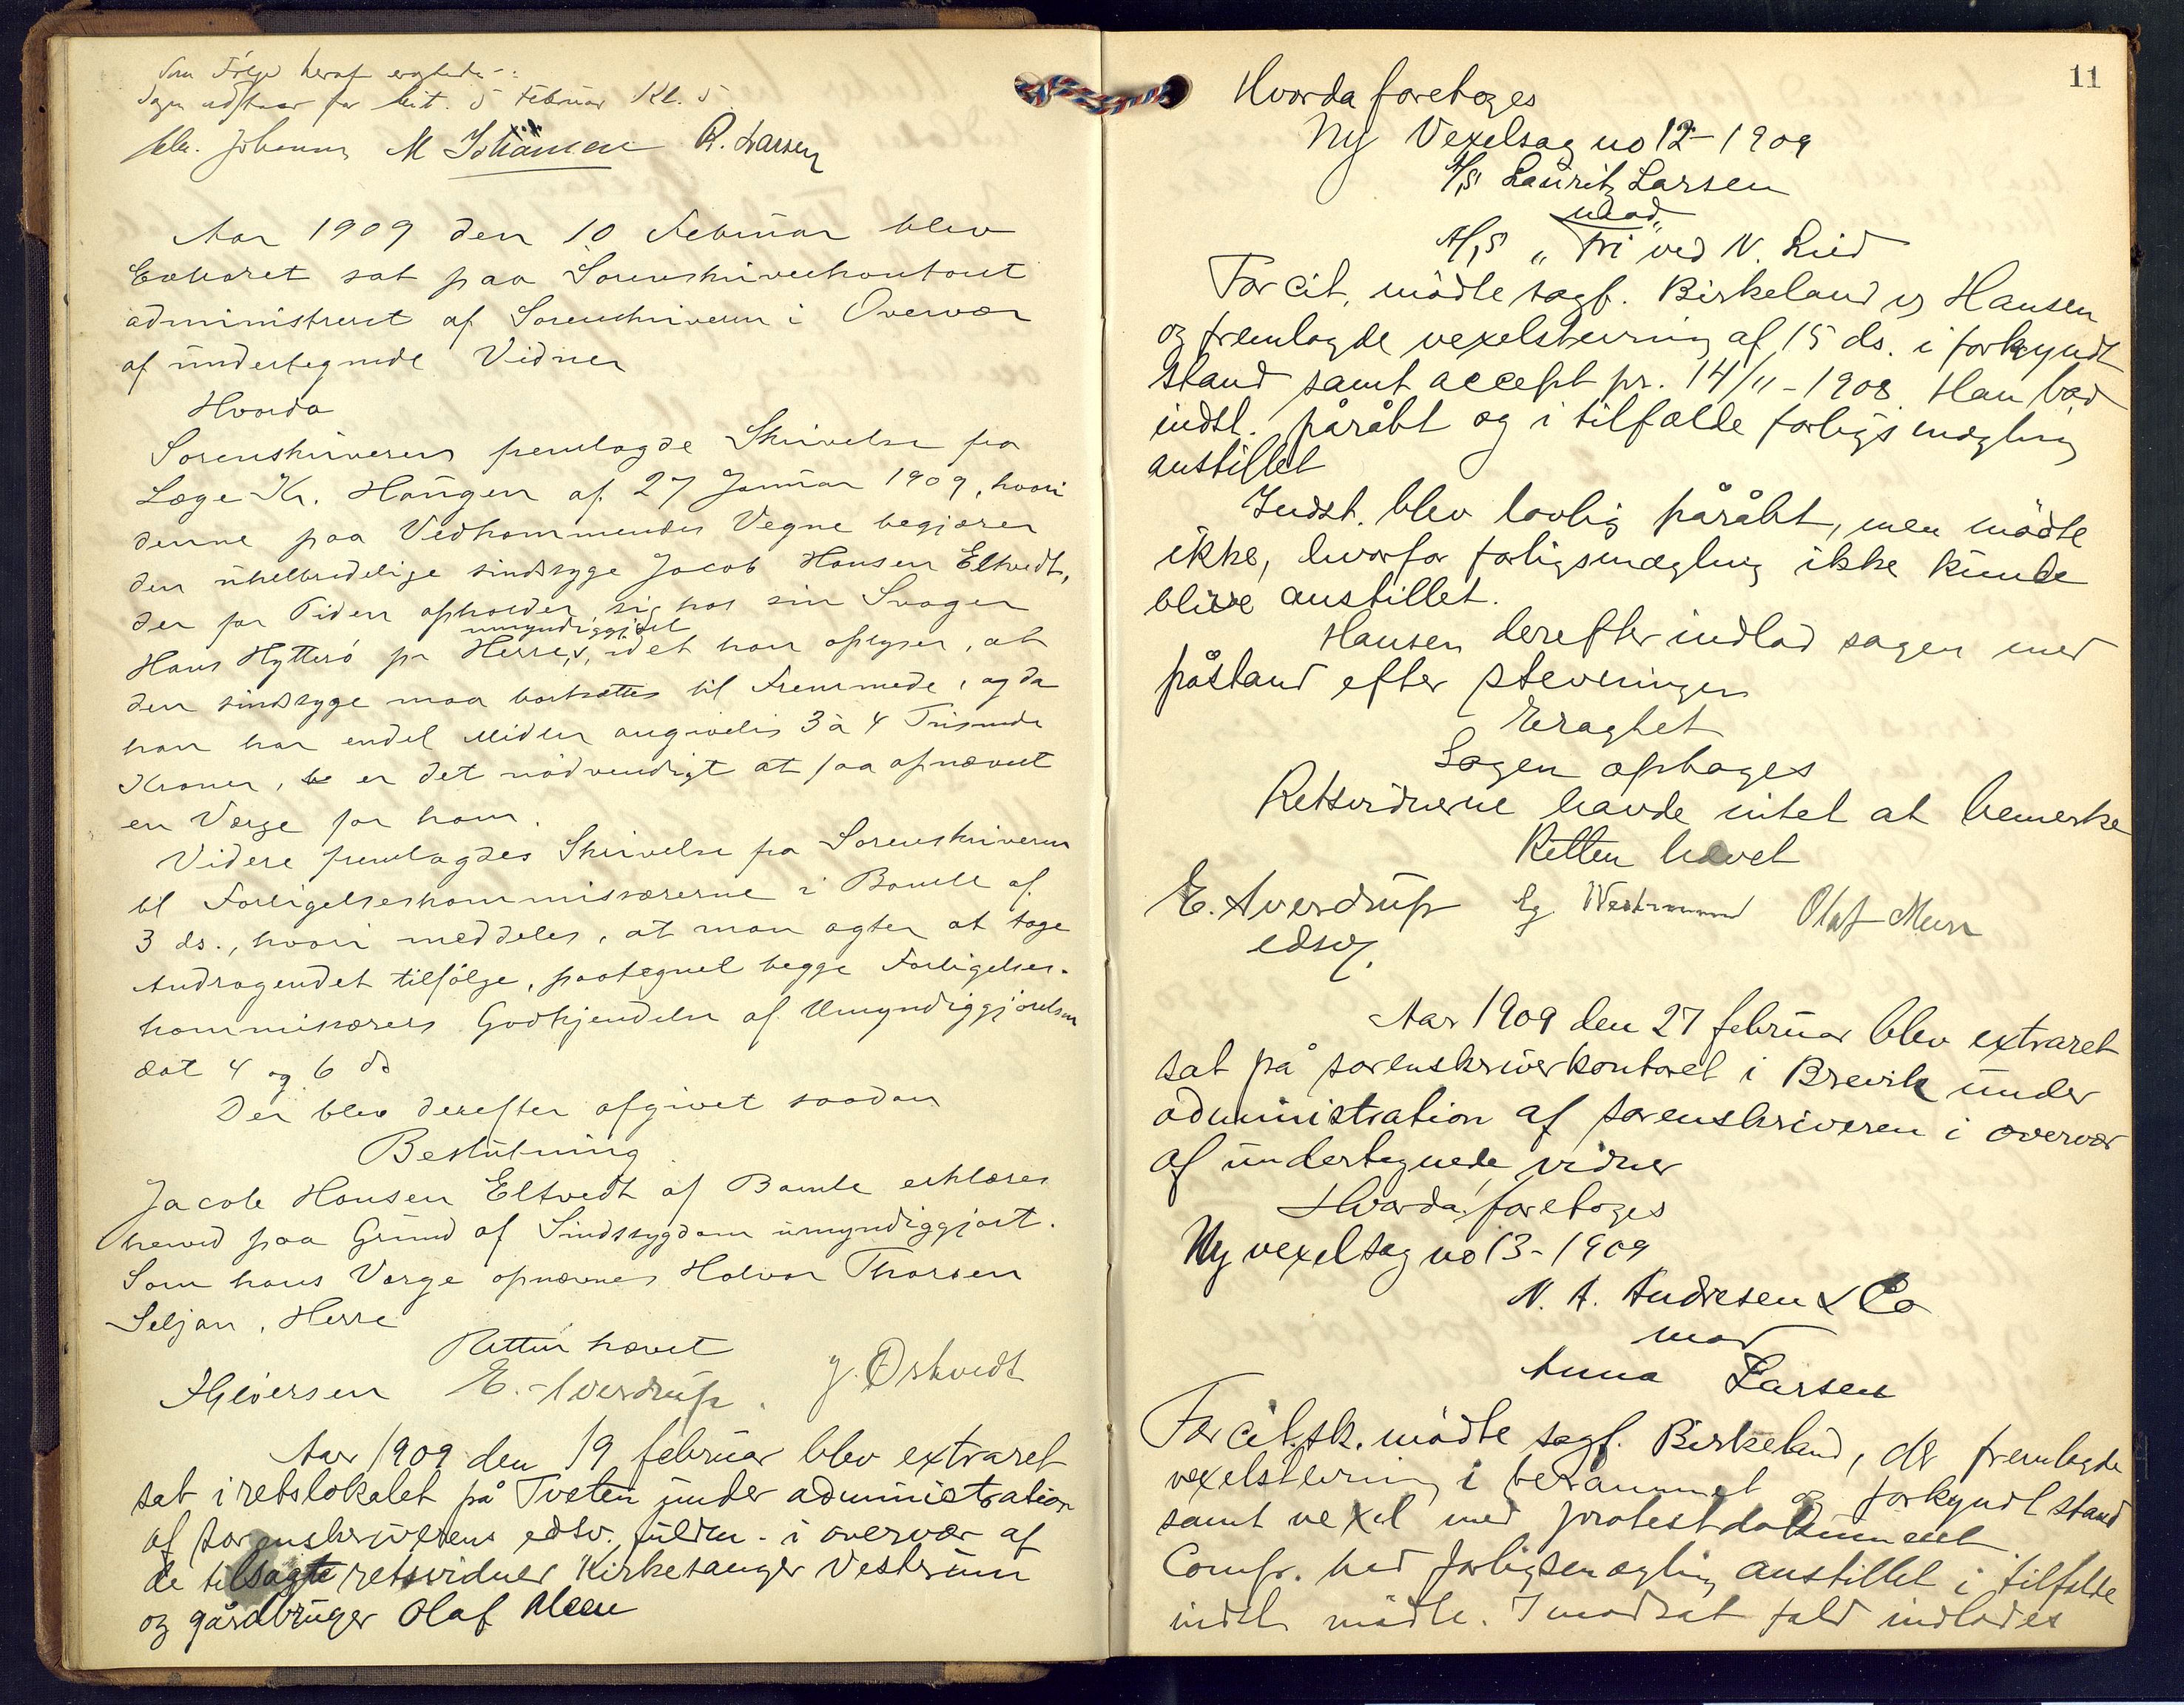 Som Følge heraf
Sagen udstaar for cit. 5 Februar Kl. 5
M Johansen R. Larsen
Aar 1909 den 10 Februar blev
Extraret sat paa Sorenskriverkontoret
administreret af Sorenskriveren i Overvær
af undertegnede Vidner
Hvorda
Sorenskriveren fremlagde Skrivelse fra
Læge Kr. Haugen af 27 Januar 1909, hvori
denne paa Vedkommendes Vegne begjærer
den uhelbredelige sindssyge Jacob Hansen Eltvedt,
der for Tiden opholder sig hos sin Svoger
umyndiggjort
Hans Hytterö pr Herre, idet han oplyser, at
den sindssyge maa bortsættes til Fremmede, og da
han har endel Midler angivelig 3 à 4 Tusinde
Kroner, er det nödvendigt at faa opnævnt
en Værge for ham.
Videre fremlagdes Skrivelse fra Sorenskriveren
til Forligelseskommissærerne i Bamle af
3 ds., hvori meddeles, at man agter at tage
Andragendet tilfölge, paategnet begge Forligelses-
kommissærers Godkjendelse af Umyndiggjörelsen
dat 4 og 6 ds
Der blev derefter afgivet saadan
Beslutning
Jacob Hansen Eltvedt af Bamle erklæres
herved paa Grund af Sindssygdom umyndiggjort.
Som hans Værge opnævnes Halvor Thorsen
Seljan, Herre
Retten hævet
E. Sverdrup J. Örstvedt
Aar 1909 den 19 februar blev extraret
sat i retslokalet på Tveten under administration
af sorenskriverens edsv. fuldm. i overvær af
de tilsagte retsvidner Kirkesanger Vestrum
og gårdbruger Olaf Meen
11
Hvorda foretoges
Ny Vexelsag no 12-1909
A/S Lauritz Larsen
mod
A/S "Fri" ved N. Lied
For cit. mödte sagf. Birkeland og Hansen
og fremlagde vexelstevning af 15 ds. i forkyndt
stand samt accept pr. 14/11-1908. Han bad
indst. påråbt og i tilfælde forligsmægling
anstillet
Indst. blev lovlig påråbt, men mödte
ikke, hvorfor forligsmægling ikke kunde
blive anstillet.
Hansen derefter indlod sagen med
påstand efter stevningen
Eragtet
Sagen optages
Retsvidnerne havde intet at bemerke
Retten hævet
E. Sverdrup Olaf Meen
edsv.
Aar 1909 den 27 februar blev extraret
sat på sorenskriverkontoret i Brevik under
administration af sorenskriveren i overvær
af undertegnede vidner
Hvorda foretoges
Ny vexelsag no 13-1909
N. A. Andresen & Co
mod
Anna Larsen
For cit.sk. mödte sagf. Birkeland, der fremlagde
vexelstevning i berammet og forkyndt stand
samt vexel med protestdokument
Comp. bad forligsmægling anstillet i tilfælde
indst. mödte. I modsat fald indlodes